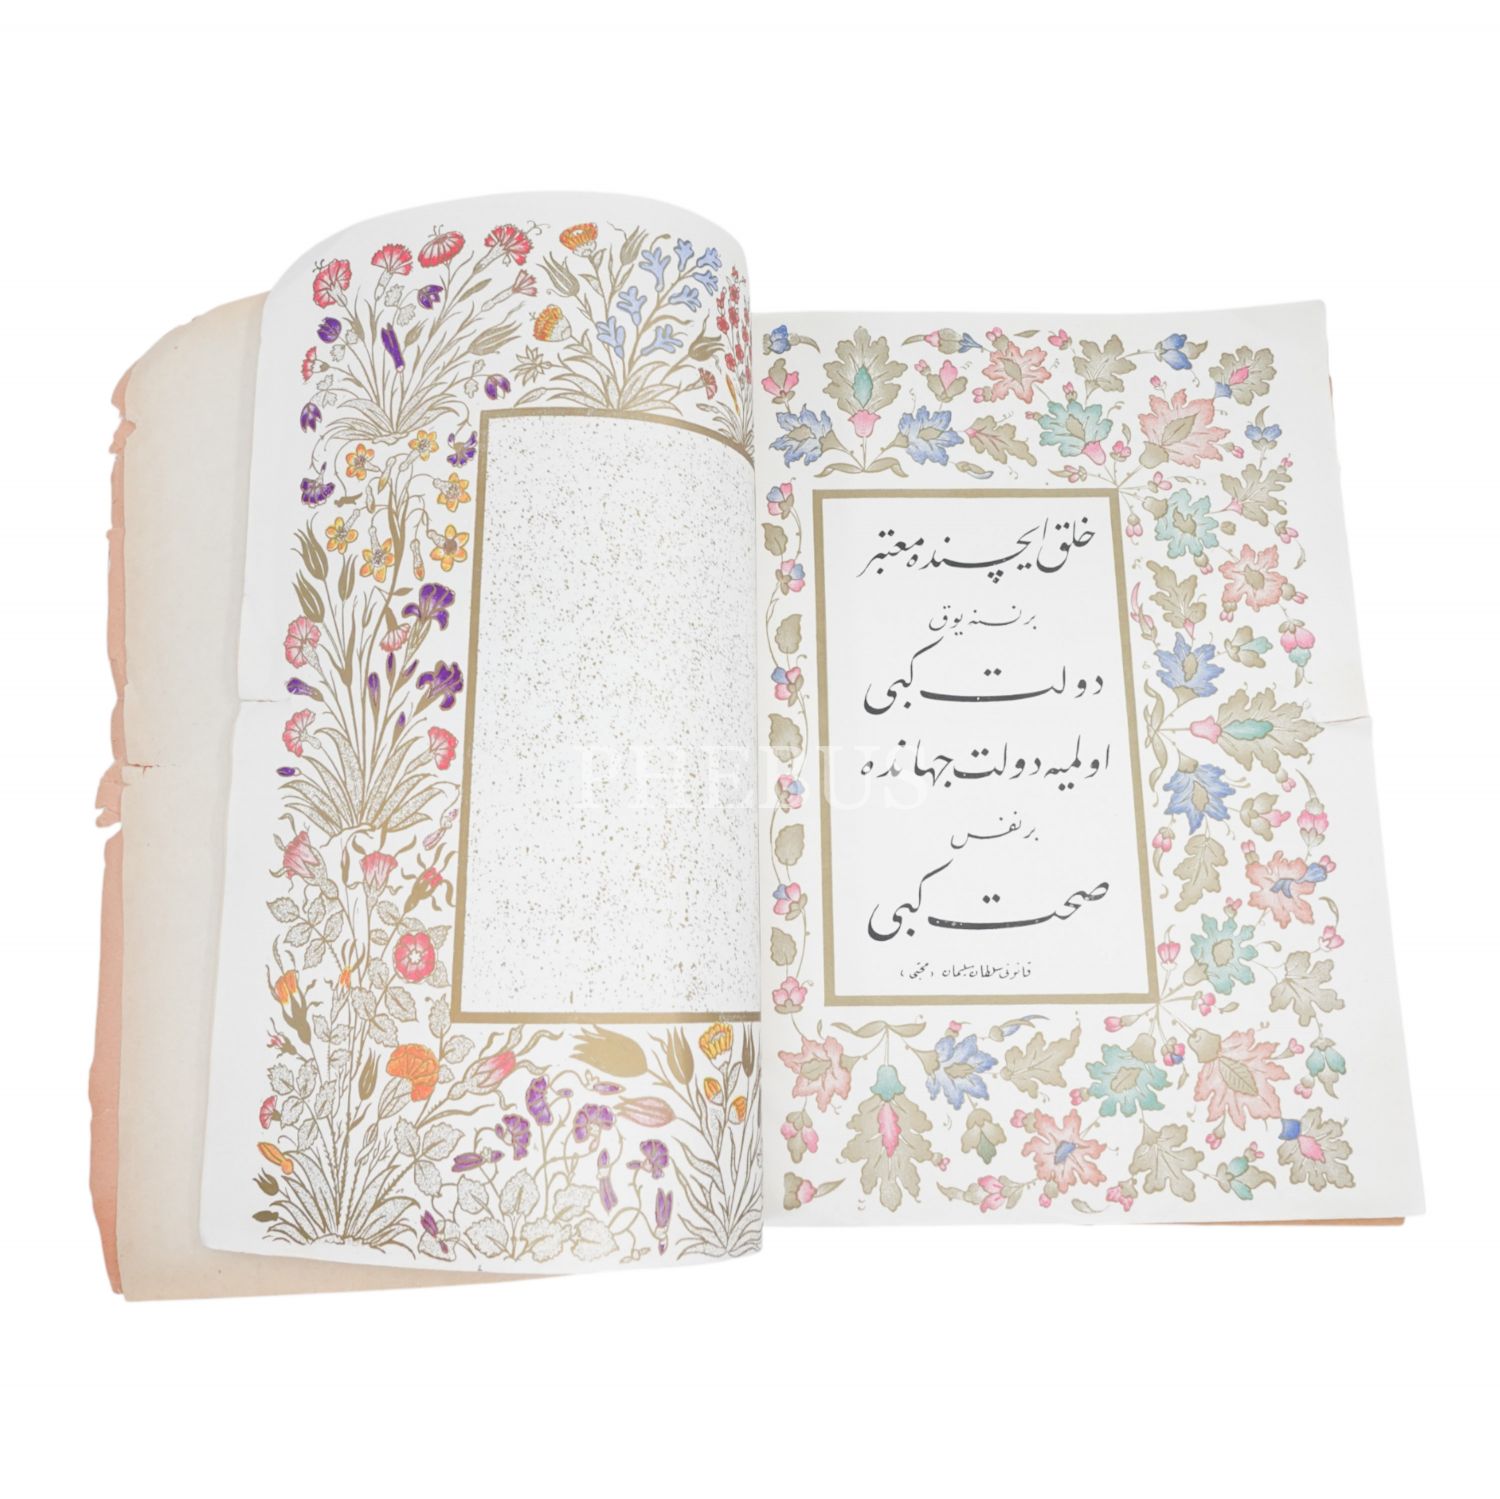 خلق ایچنده معتبر
بر نسنه یوق
دولت کبی
اولمیه دولت جهانده
بر نفس
صحت کبی
قانونی سلطان سلیمان (محبّی)
PHEBUS